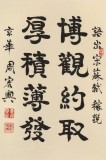 語出宋蘇軾雜說
博觀約取
厚積薄發
京華周宏興